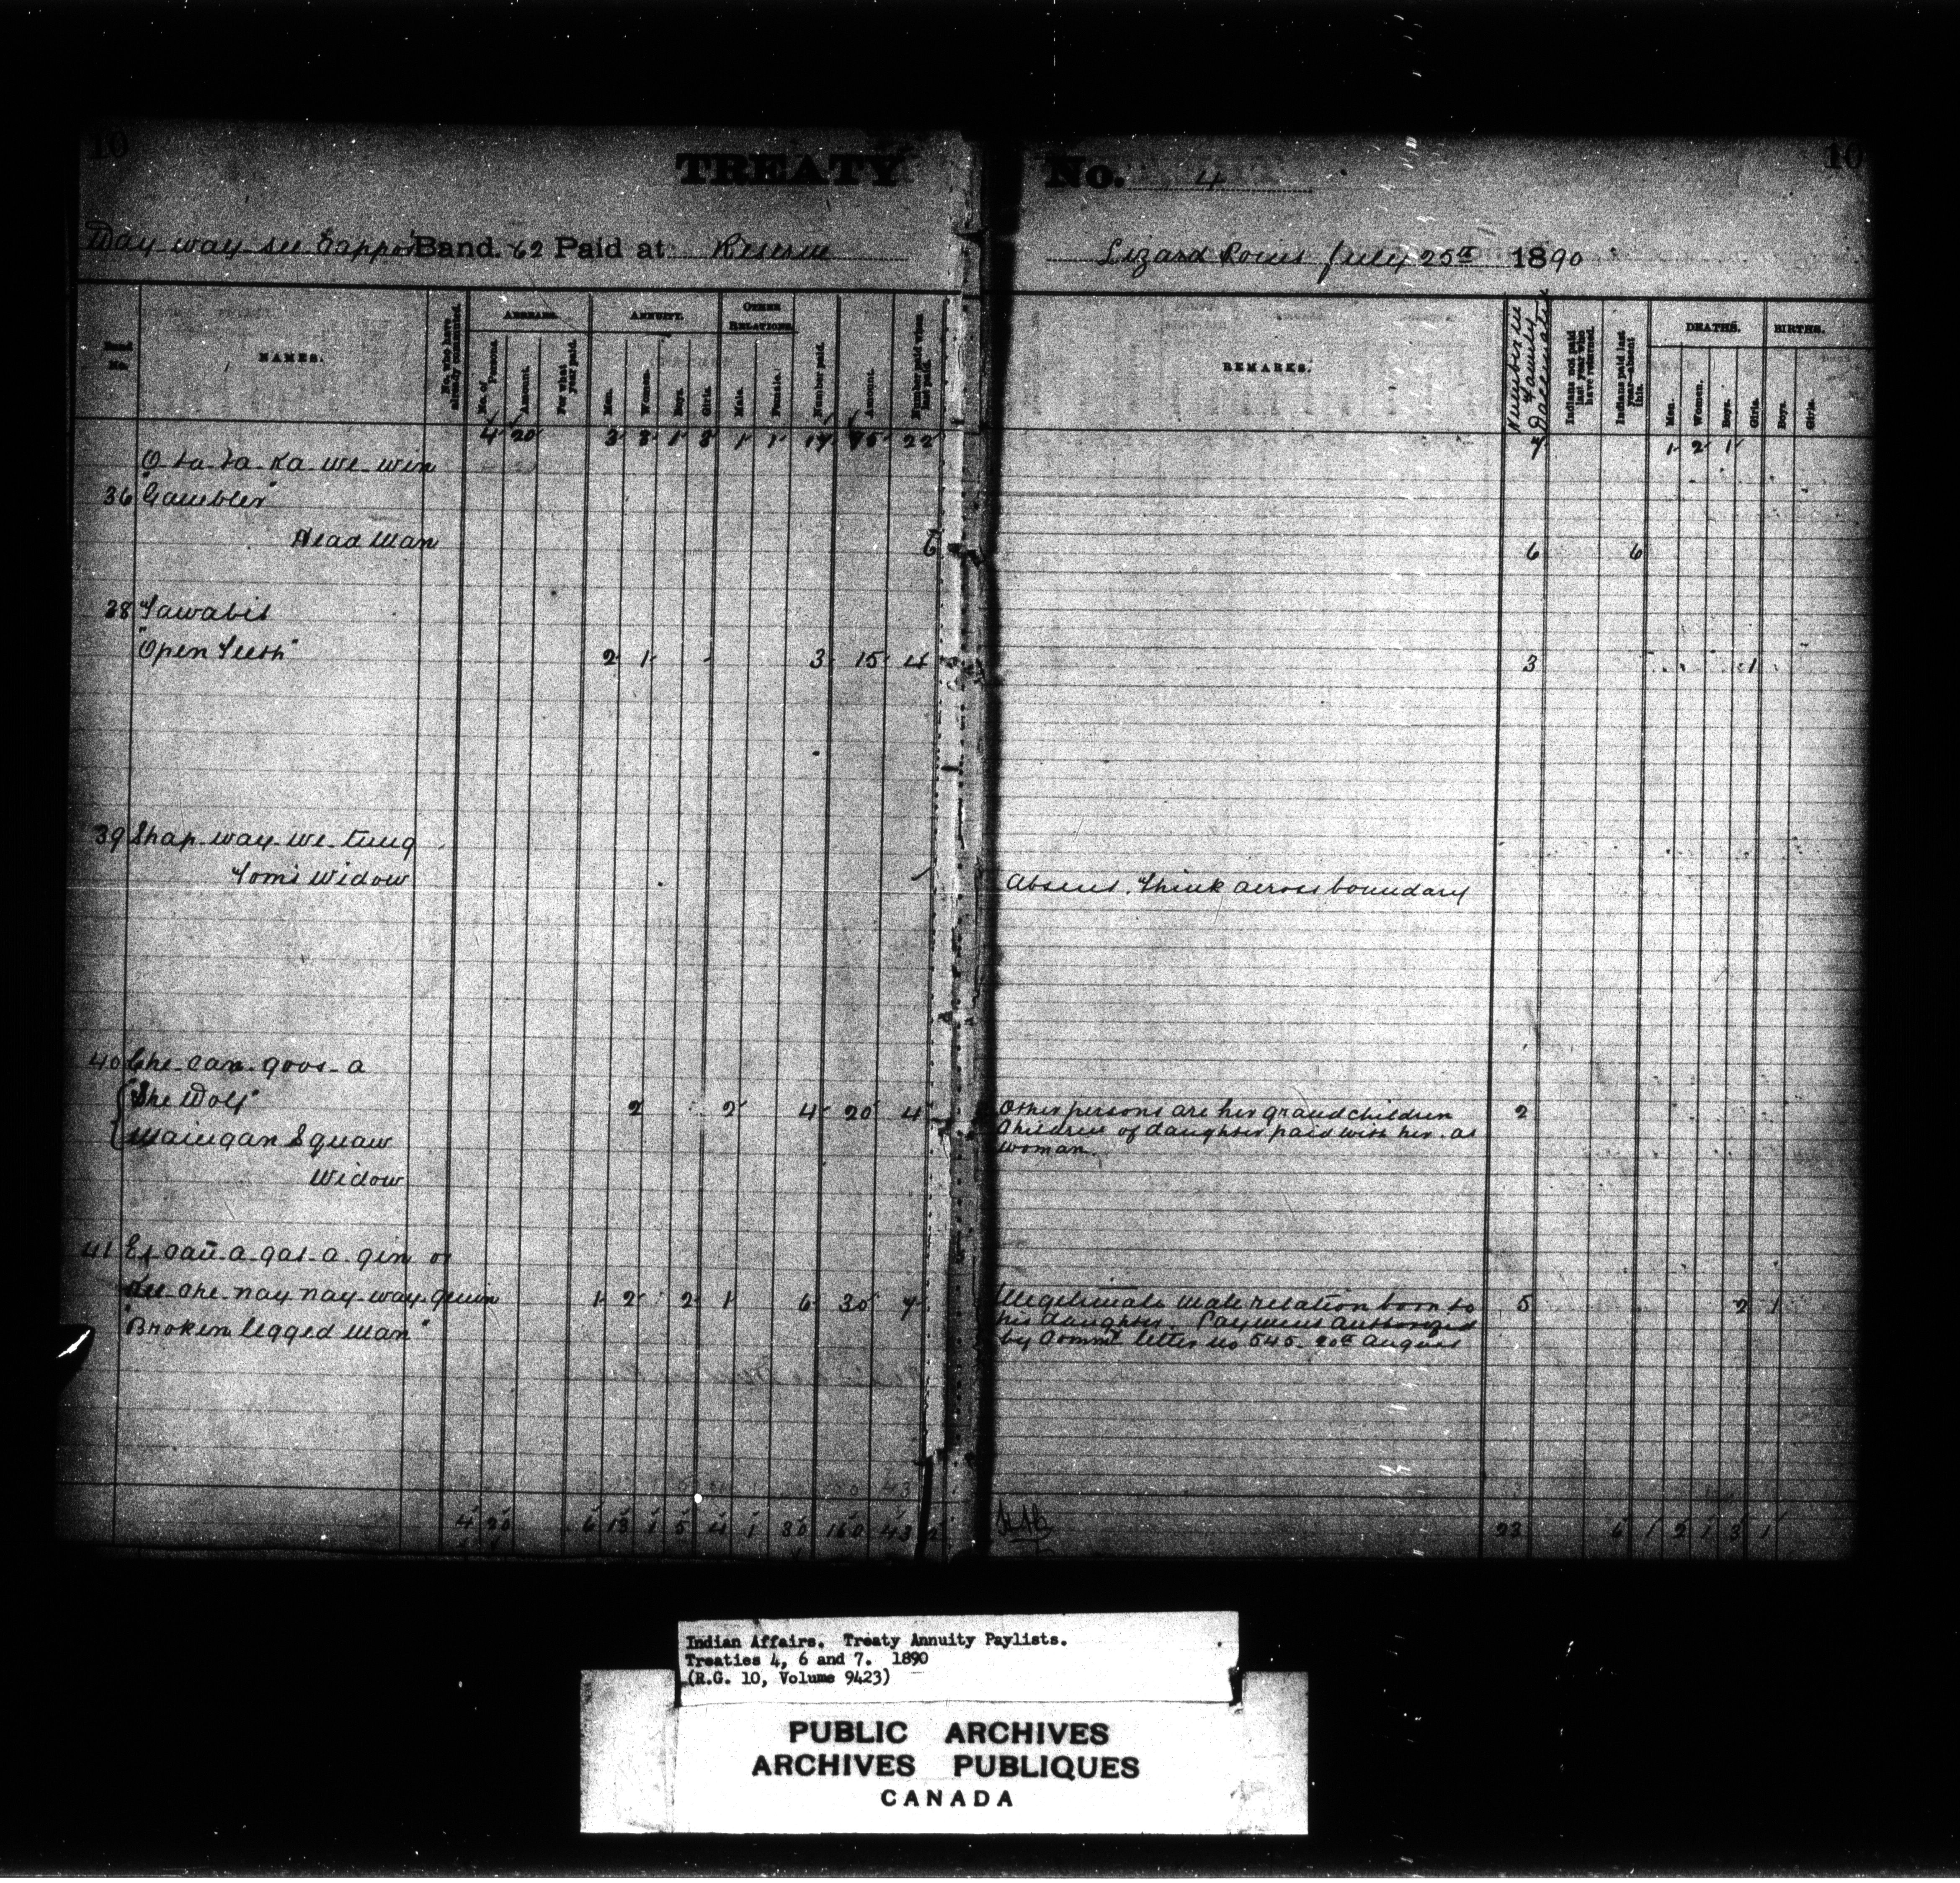 10
TREATY No. 4
10
Way-way-see Cappo Band. 62 Paid at Reserve
Lizard Point July 25th 1890
Band No.
NAMES.
No. who have already commuted.
ARREARS.
No. of Persons.
Amount.
For what year paid.
ANNUITY.
Men.
Women.
Boys.
Girls.
OTHER RELATIONS.
Male.
Female.
Number paid.
Amount.
Number paid when last paid.
REMARKS.
Number in Family Vaccinated.
Indians not paid last year who have returned.
Indians paid last year—absent this.
DEATHS.
Men.
Women.
Boys.
Girls.
BIRTHS.
Boys.
Girls.
4 20 3 8 1 3 1 1 17 95 22 7 1 2 1
O ta ta ka we win
36 "Gambler"
Head Man 6 6 6
38 Tawabit
"Open Teeth" 2 1 3 15 4 3 1
39 Shap-way-we-tung
Tom's Widow 1 Absent. Think across boundary
40 Che-can-goos-a
"She Wolf" 2 2 4 20 4 Other persons are her grandchildren 2
Maiugan Squaw Children of daughter paid with her. as
Widow woman.
41 Es-can-a-gas-a-gin or
Kee-che-nay nay-way-quin 1 2 2 1 6 30 7 Illegitimate male relation born to 5 2 1
"Broken legged Man" his daughter. Payment authorized
by Commr letter no 545. 20th August
4 20 6 13 1 5 4 1 30 160 43 23 6 1 2 1 3 1
Indian Affairs. Treaty Annuity Paylists.
Treaties 4, 6 and 7. 1890
(R.G. 10, Volume 9423)
PUBLIC ARCHIVES
ARCHIVES PUBLIQUES
CANADA